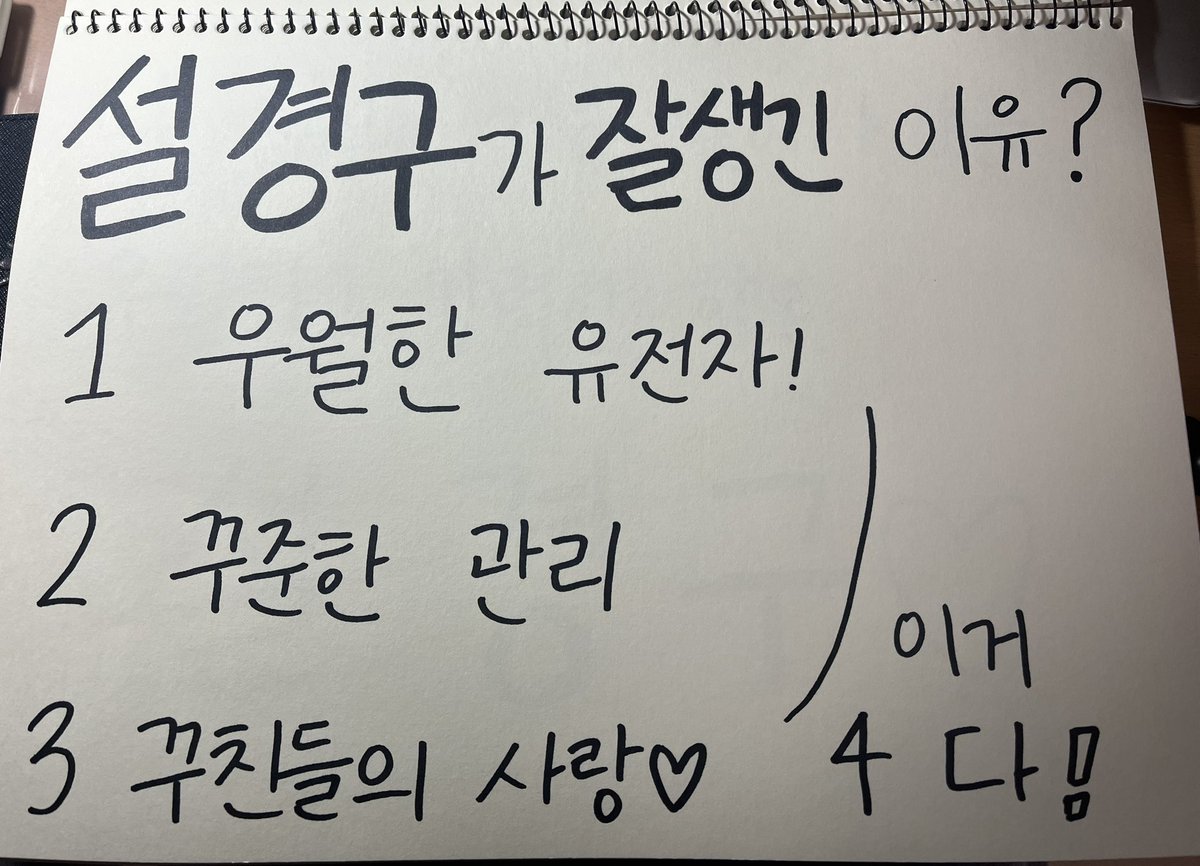 설경구가 잘생긴 이유?
1 우월한 유전자!
2 꾸준한 관리
3 꾸친들의 사랑♡
이거
4 다!